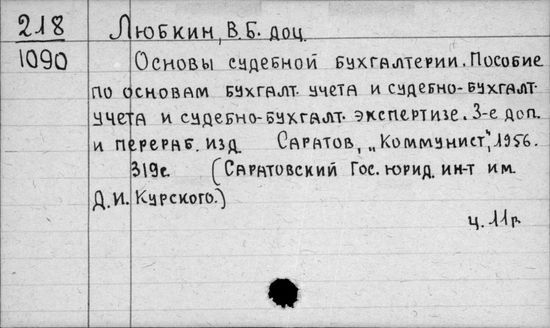 218 Любкин, В.Б. доц.
1090 Основы судебной бухгалтерии. Пособие
по основам бухгалт. учета и судебно-бухгалт.
учета и судебно-бухгалт. экспертизе. 3-е доп.
и перераб. изд. Саратов, „Коммунист", 1956.
319с. (Саратовский Гос. юрид. ин-т им.
Д.И. Курского.)
ц. 11р.